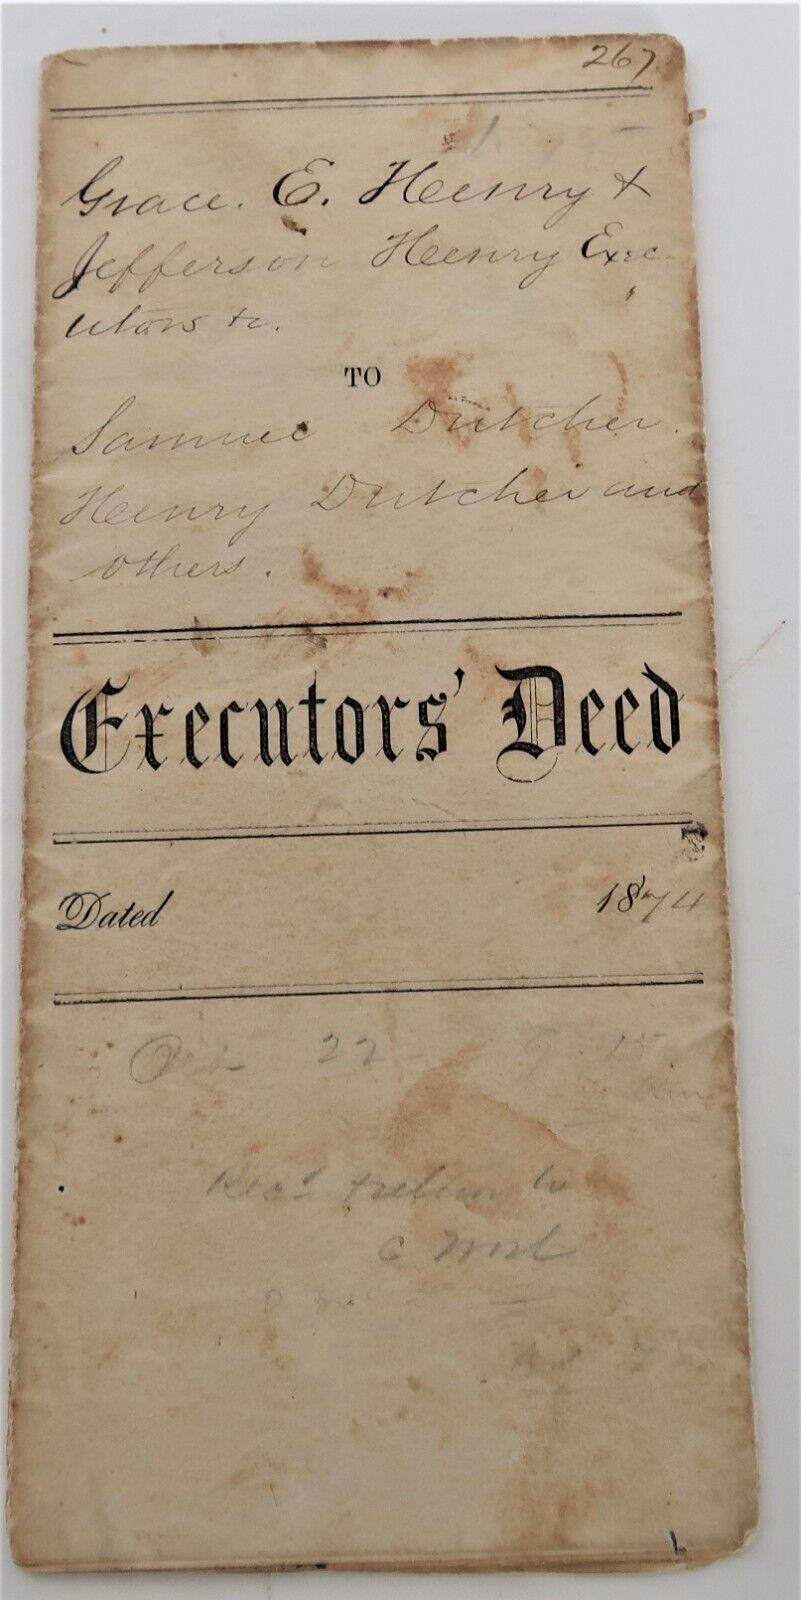 267
Grace. E. Henry &
Jefferson Henry Exec-
utors &c.
TO
Samuel Dutcher.
Henry Dutcher and
others.
Executors' Deed
Dated 1874
22 9 15
Rec'd & return to
C